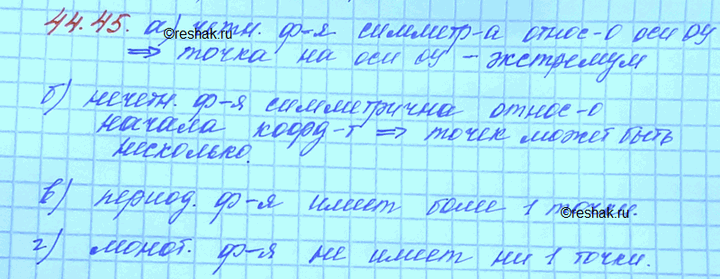 44.45. а) четн. ф-я симметр-а относ-о оси ОУ
⇒ точка на оси ОУ – экстремум
б) нечетн. ф-я симметрична относ-о
начала коорд-т ⇒ точек может быть
несколько.
©reshak.ru
в) период. ф-я имеет более 1 точки.
©reshak.ru
г) монот. ф-я не имеет ни 1 точки.